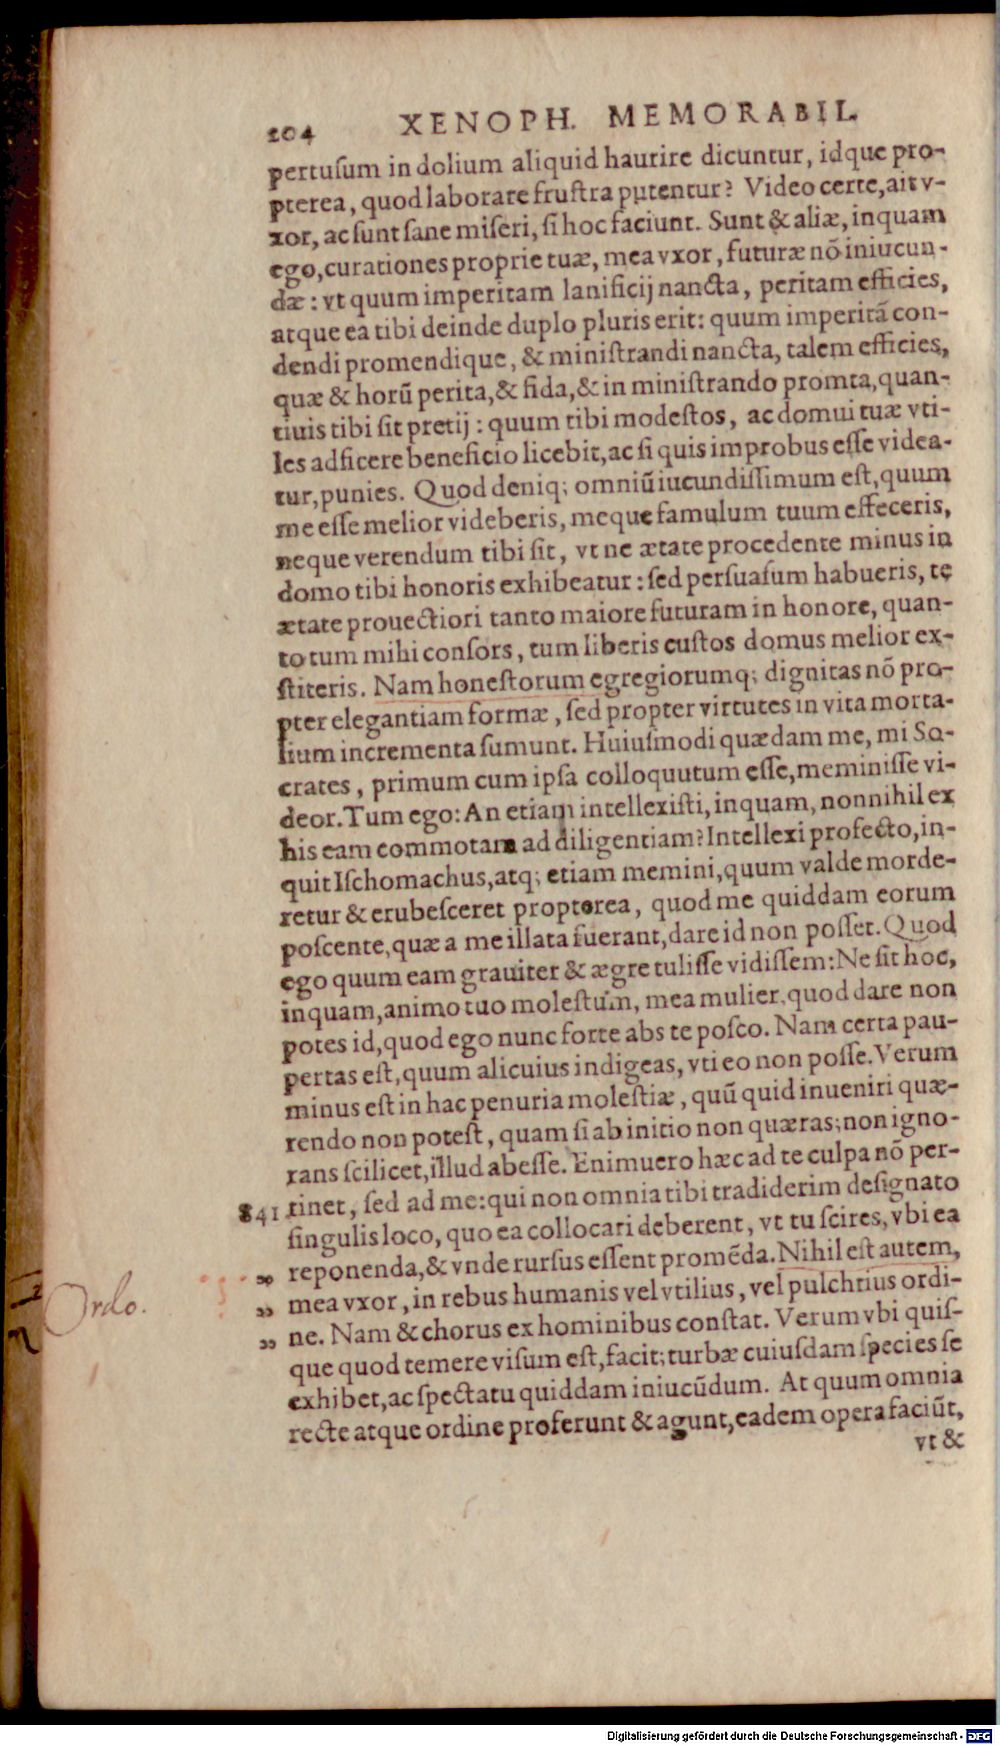 204 XENOPH. MEMORABIL.
pertuſum in dolium aliquid haurire dicuntur, idque pro-
pterea, quod laborare fruſtra putentur? Video certe, ait v-
xor, ac ſunt ſane miſeri, ſi hoc faciunt. Sunt & aliæ, inquam
ego, curationes proprie tuæ, mea vxor, futuræ nõ iniucun-
dæ: vt quum imperitam lanificij nancta, peritam efficies,
atque ea tibi deinde duplo pluris erit: quum imperitã con-
dendi promendique, & miniſtrandi nancta, talem efficies,
quæ & horũ perita, & fida, & in miniſtrando promta, quan-
tiuis tibi ſit pretij: quum tibi modeſtos, ac domui tuæ vti-
les adficere beneficio licebit, ac ſi quis improbus eſſe videa-
tur, punies. Quod deniq; omniũ iucundiſſimum eſt, quum
me eſſe melior videberis, meque famulum tuum effeceris,
neque verendum tibi ſit, vt ne ætate procedente minus in
domo tibi honoris exhibeatur: ſed perſuaſum habueris, te
ætate prouectiori tanto maiore futuram in honore, quan-
to tum mihi conſors, tum liberis cuſtos domus melior ex-
ſtiteris. Nam honeſtorum egregiorumq; dignitas nõ pro-
pter elegantiam formæ, ſed propter virtutes in vita morta-
lium incrementa ſumunt. Huiuſmodi quædam me, mi So-
crates, primum cum ipſa colloquutum eſſe, meminiſſe vi-
deor. Tum ego: An etiam intellexiſti, inquam, nonnihil ex
his eam commotam ad diligentiam? Intellexi profecto, in-
quit Iſchomachus, atq; etiam memini, quum valde morde-
retur & erubeſceret propterea, quod me quiddam eorum
poſcente, quæ a me illata fuerant, dare id non poſſet. Quod
ego quum eam grauiter & ægre tuliſſe vidiſſem: Ne ſit hoc,
inquam, animo tuo moleſtum, mea mulier, quod dare non
potes id, quod ego nunc forte abs te poſco. Nam certa pau-
pertas eſt, quum alicuius indigeas, vti eo non poſſe. Verum
minus eſt in hac penuria moleſtiæ, quũ quid inueniri quæ-
rendo non poteſt, quam ſi ab initio non quæras; non igno-
rans ſcilicet, illud abeſſe. Enimuero hæc ad te culpa nõ per-
841 tinet, ſed ad me: qui non omnia tibi tradiderim deſignato
ſingulis loco, quo ea collocari deberent, vt tu ſcires, vbi ea
„ reponenda, & vnde rurſus eſſent promẽda. Nihil eſt autem,
Ordo. „ mea vxor, in rebus humanis vel vtilius, vel pulchrius ordi-
„ ne. Nam & chorus ex hominibus conſtat. Verum vbi quiſ-
que quod temere viſum eſt, facit; turbæ cuiuſdam ſpecies ſe
exhibet, ac ſpectatu quiddam iniucũdum. At quum omnia
recte atque ordine proferunt & agunt, eadem opera faciũt,
vt &
Digitalisierung gefördert durch die Deutsche Forschungsgemeinschaft - DFG